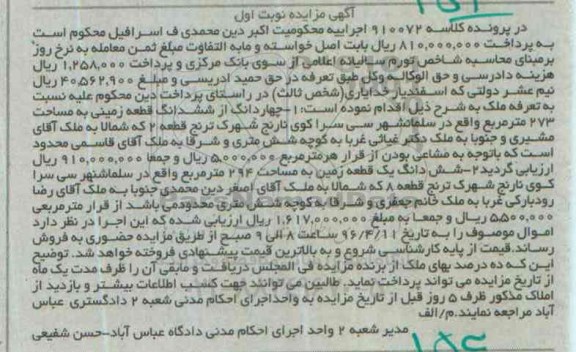 آگهی مزایده نوبت اول
در پرونده کلاسه ۹۱۰۰۷۲ اجراییه محکومیت اکبر دین محمدی ف اسرافیل محکوم است
به پرداخت ۸۱۰,۰۰۰,۰۰۰ ریال بابت اصل خواسته و مابه التفاوت مبلغ ثمن معامله به نرخ روز
برمبنای محاسبه شاخص تورم سالیانه اعلامی از سوی بانک مرکزی و پرداخت ۱,۲۵۸,۰۰۰ ریال
هزینه دادرسی و حق الوکاله وکل طبق تعرفه در حق حمید ادریسی و مبلغ ۴۰,۵۶۲,۹۰۰ ریال
نیم عشر دولتی که اسفندیار خدایاری(شخص ثالث) در راستای پرداخت دین محکوم علیه نسبت
به تعرفه ملک به شرح ذیل اقدام نموده است: ۱-چهاردانگ از ششدانگ قطعه زمینی به مساحت
۲۷۳ مترمربع واقع در سلمانشهر سی سرا کوی نارنج شهرک ترنج قطعه ۲ که شمالا به ملک آقای
مشیری و جنوبا به ملک دکتر غیاثی غربا به کوچه شش متری و شرقا به ملک آقای قاسمی محدود
است که باتوجه به مشاعی بودن از قرار هرمترمربع ۵,۰۰۰,۰۰۰ ریال و جمعا ۹۱۰,۰۰۰,۰۰۰ ریال
ارزیابی گردید۲-شش دانگ یک قطعه زمین به مساحت ۲۹۴ مترمربع واقع در سلمانشهر سی سرا
کوی نارنج شهرک ترنج قطعه ۸ که شمالا به ملک آقای اصغر دین محمدی جنوبا به ملک آقای رضا
رودبارکی غربا به ملک خانم جعفری و شرقا به کوچه شش متری محدودمی باشد از قرار مترمربعی
۵۵۰۰,۰۰۰ ریال و جمعا به مبلغ ۱,۶۱۷,۰۰۰,۰۰۰ ریال ارزیابی شده که این اجرا در نظر دارد
اموال موصوف را به تاریخ ۹۶/۴/۱۱ ساعت ۸ الی ۹ صبح از طریق مزایده حضوری به فروش
رساند.قیمت از پایه کارشناسی شروع و به بالاترین قیمت پیشنهادی فروخته خواهد شد. توضیح
این که ده درصد بهای ملک از برنده مزایده فی المجلس دریافت و مابقی آن را ظرف مدت یک ماه
از تاریخ مزایده می تواند پرداخت نماید. طالبین می توانند جهت کسب اطلاعات بیشتر و بازدید از
املاک مذکور ظرف ۵ روز قبل از تاریخ مزایده به واحداجرای احکام مدنی شعبه ۲ دادگستری عباس
آباد مراجعه نمایند.م/الف
مدیر شعبه ۲ واحد اجرای احکام مدنی دادگاه عباس آباد-حسن شفیعی